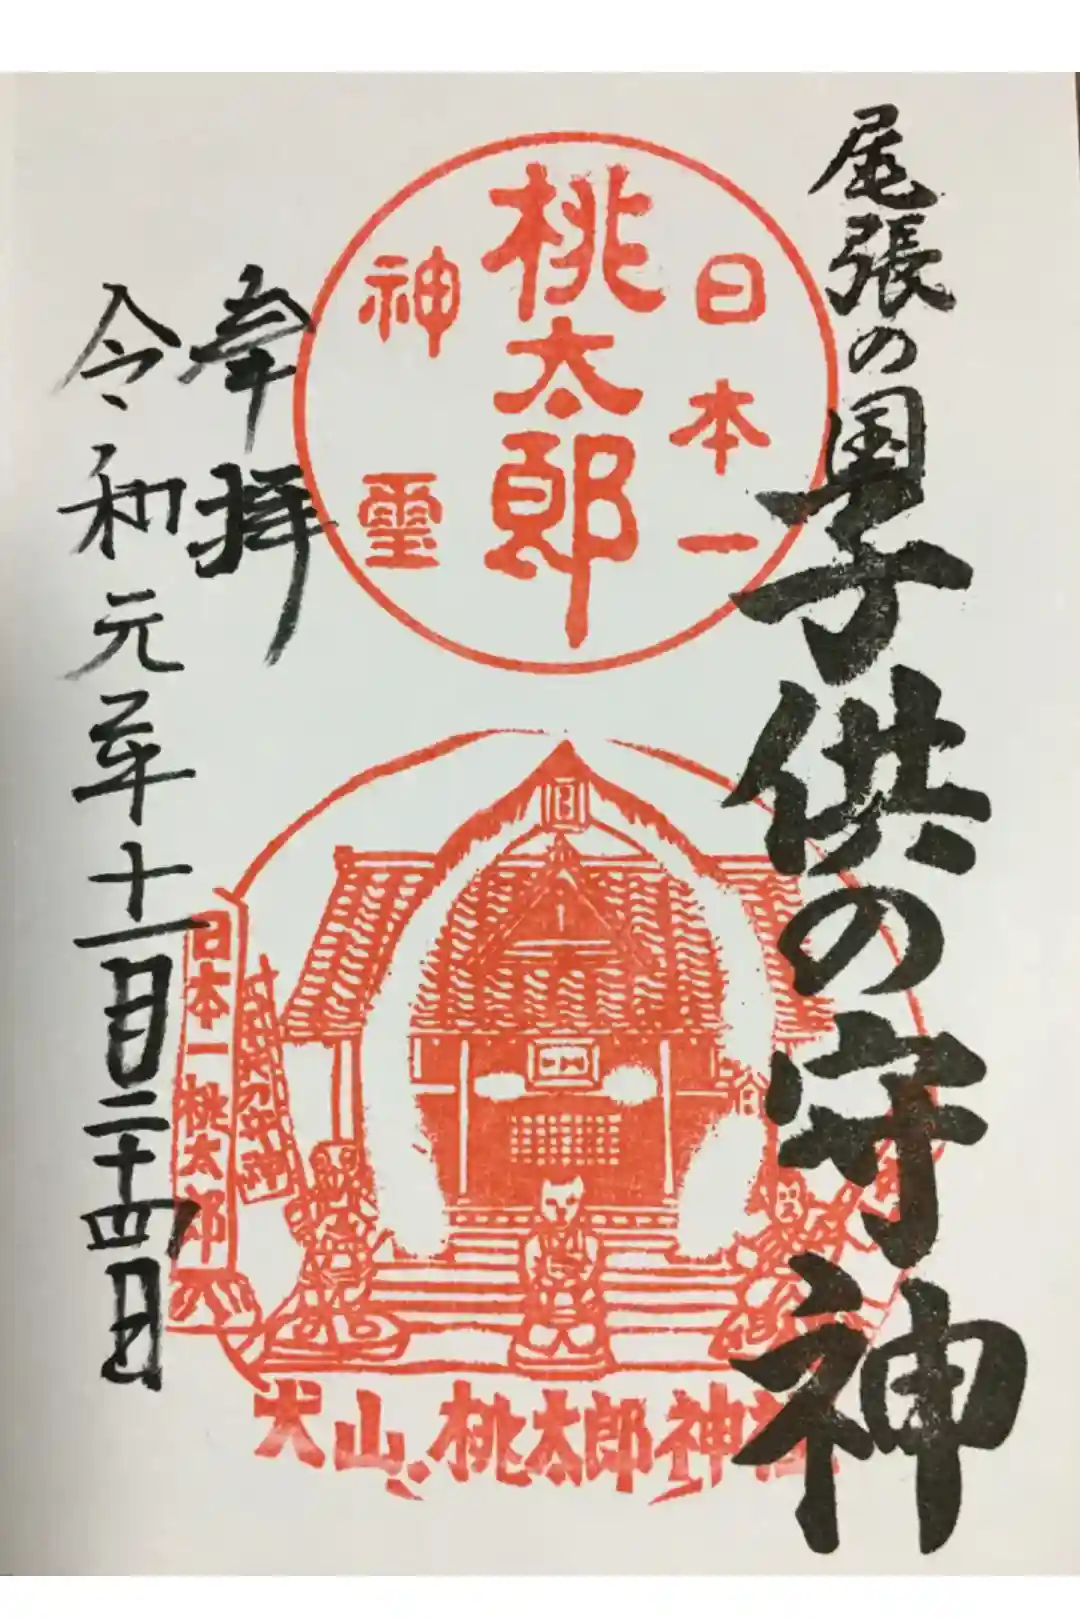 尾張の国
子供の守神
日本一
桃太郎
神璽
奉拝
令和元年十一月二十四日
日本一桃太郎
犬山桃太郎神社